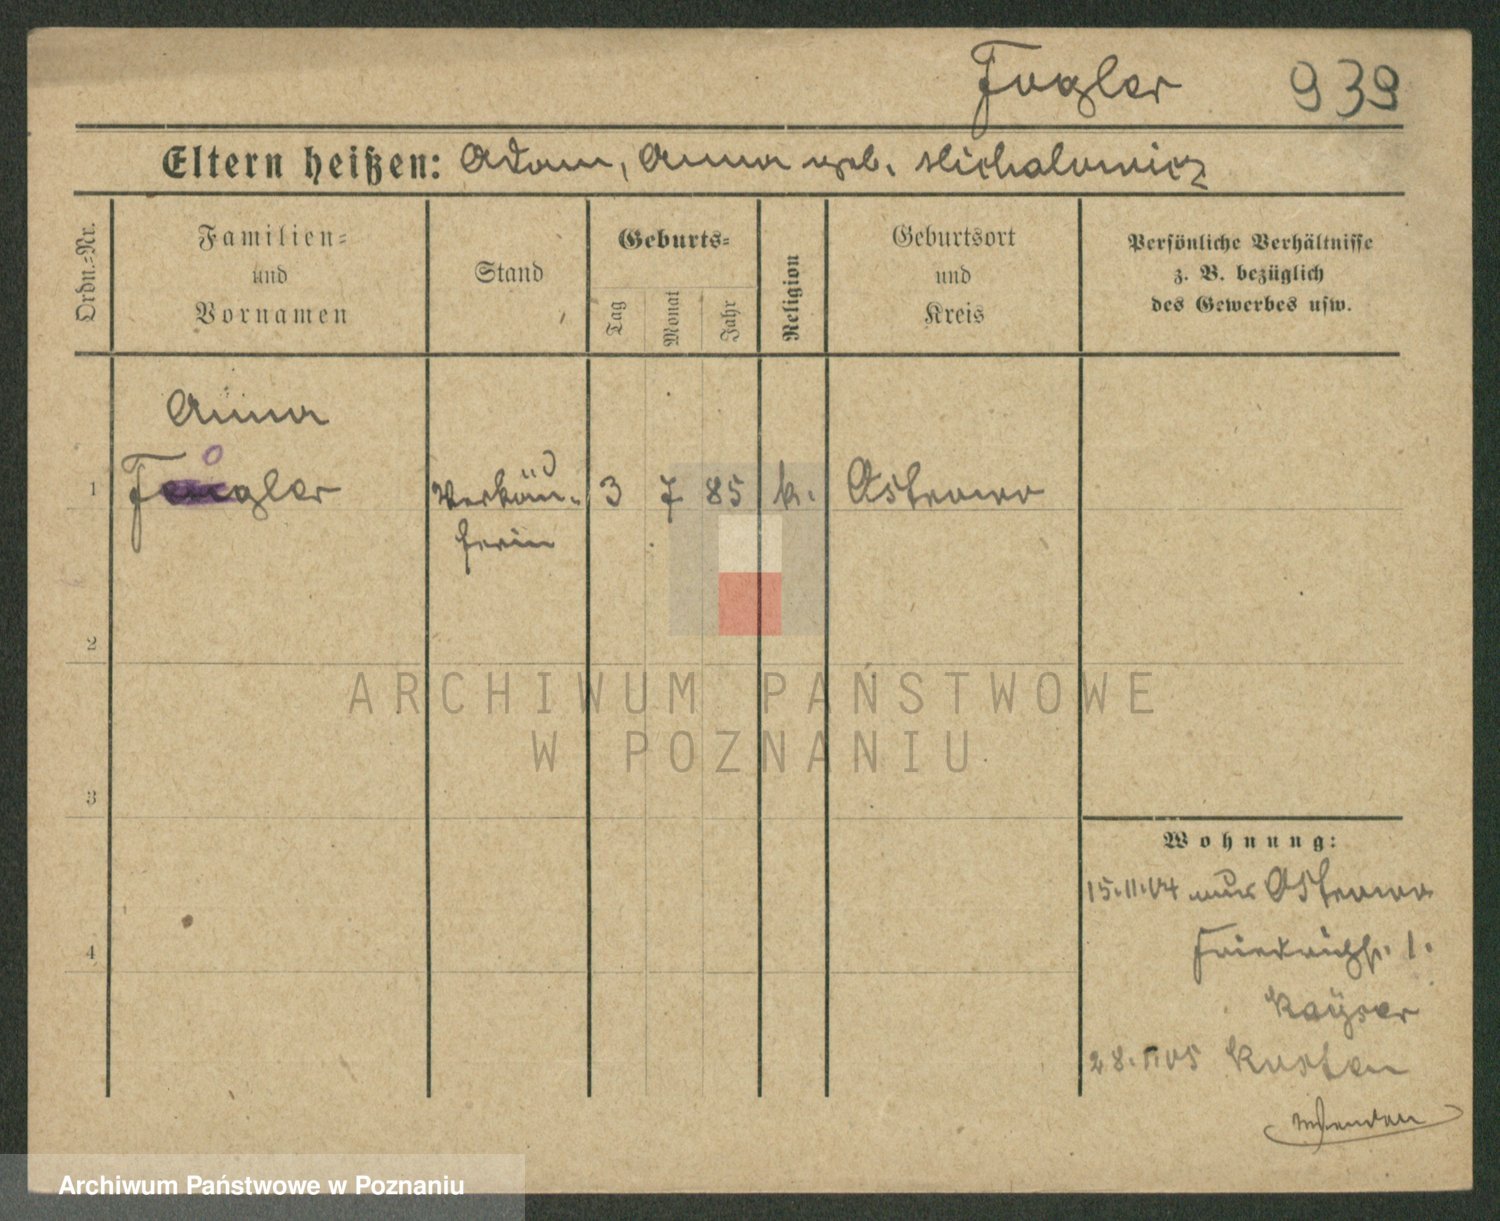 Fogler 939
Eltern heißen: Adam, Anna geb. Michalowicz
Ordn.-Nr.
Familien-
und
Vornamen
Stand
Geburts-
Tag
Monat
Jahr
Religion
Geburtsort
und
Kreis
Persönliche Verhältnisse
z. B. bezüglich
des Gewerbes usw.
Anna
1 Fogler Verkäu- 3 7 85 k. Ostrowo
ferin
2
3
4
Wohnung:
15.11.04 aus Ostrowo
Friedrichstr. 1.
Kayser
28. 05 Kosten
ARCHIWUM PAŃSTWOWE
W POZNANIU
Archiwum Państwowe w Poznaniu